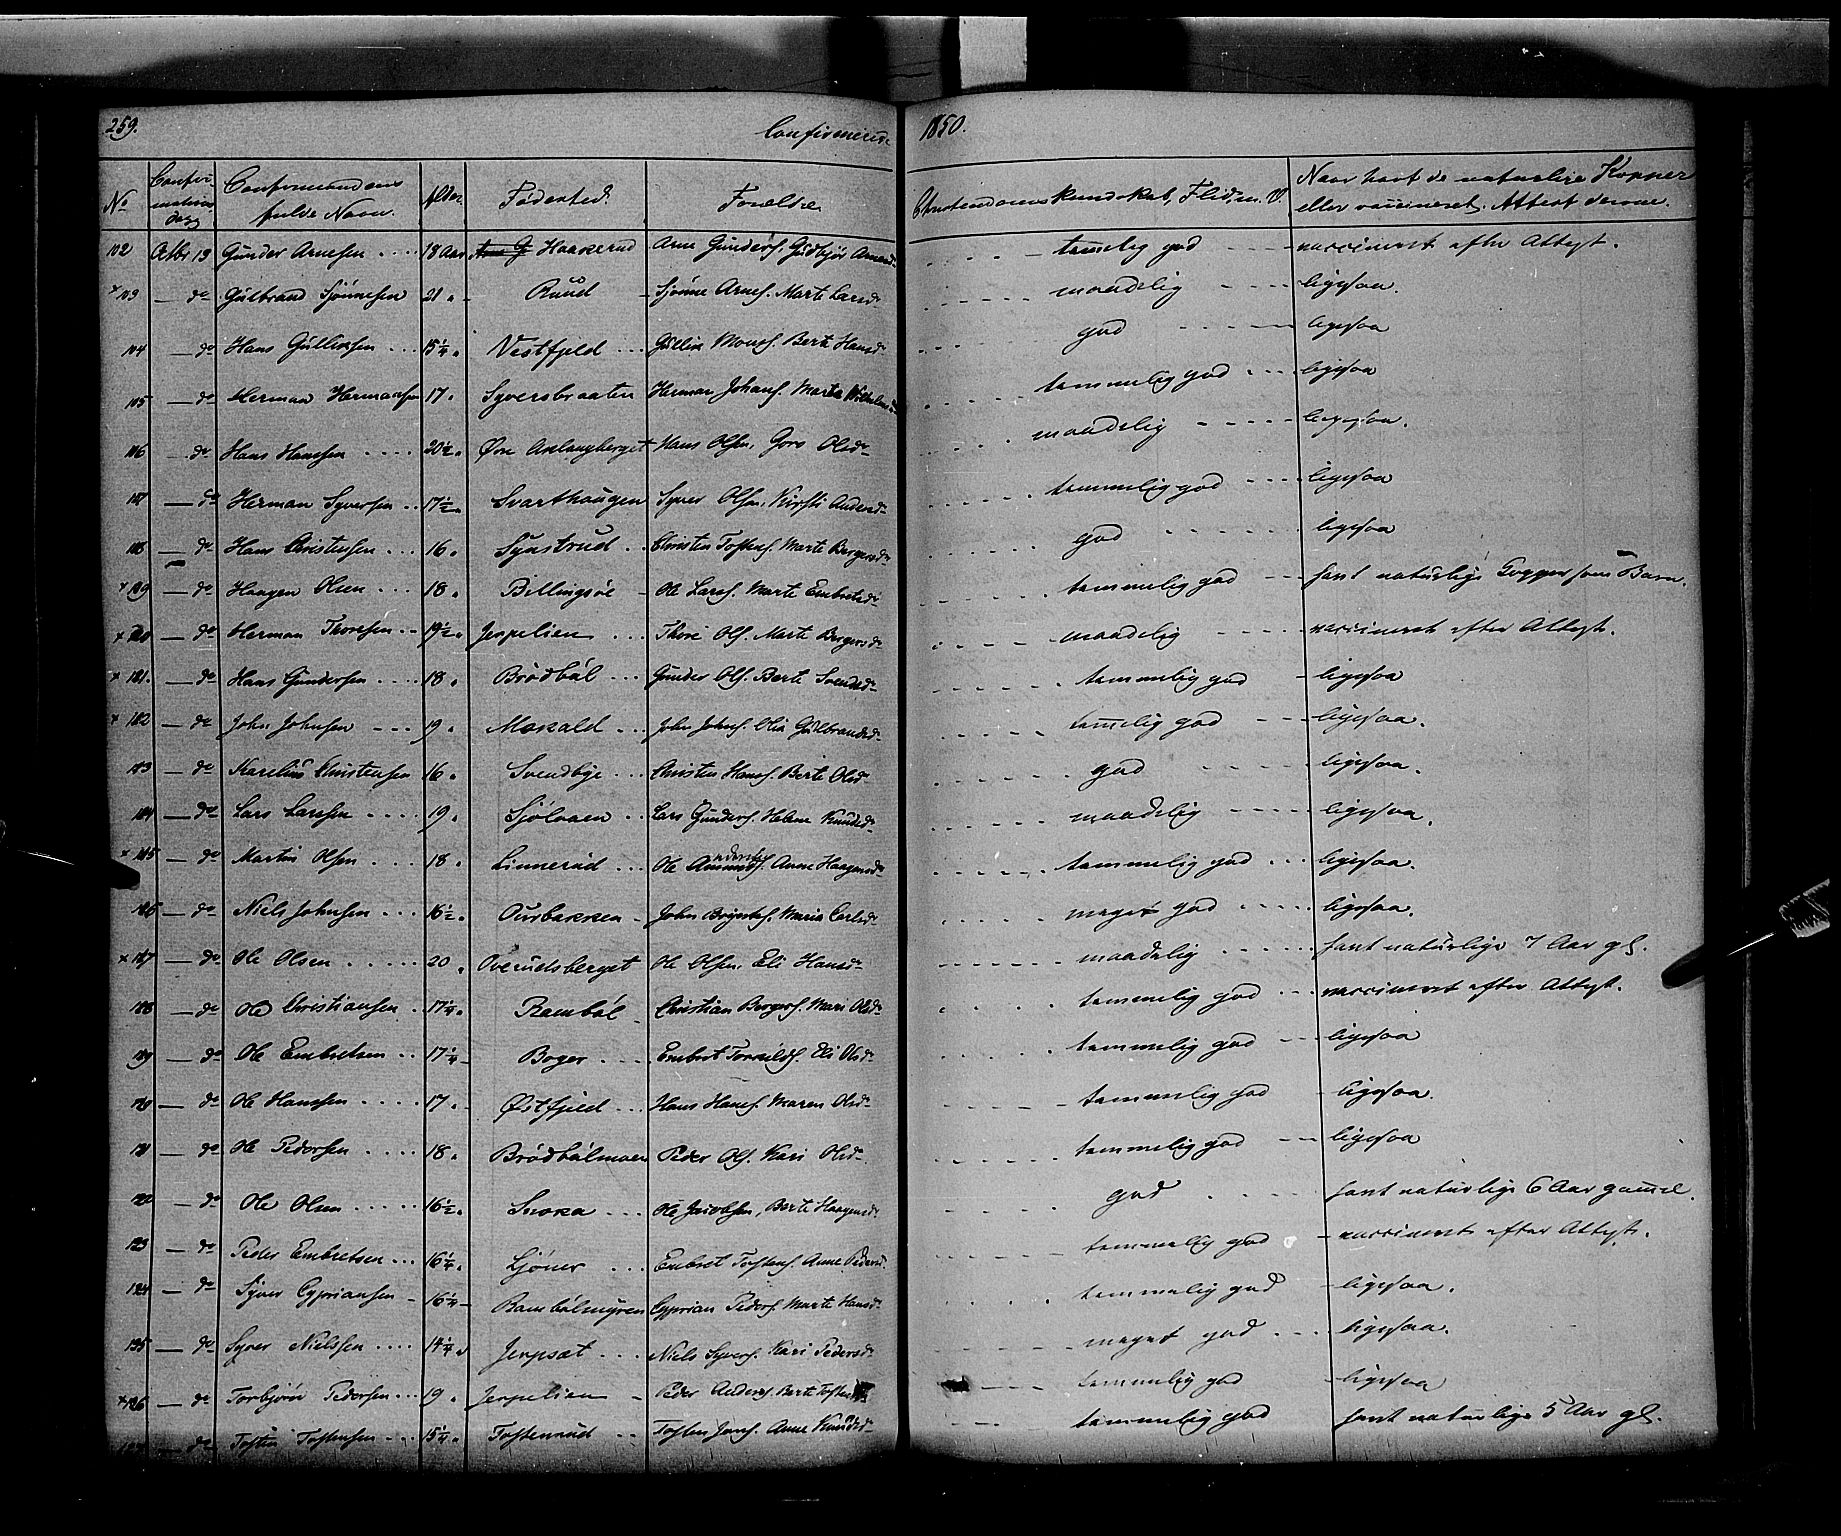 259. Confirmerede 1850.
No Confirmations Dag Confirmandens fulde Navn. Alder Fødested. Forældre Christendomskundskab, Flid m. V. Naar havt de naturlige Kopper eller vaccineret. Attest derom.
102 Octbr 13 Gunder Arnesen .... 18 Aar Haakerud Arne Gunders. Gudbjør Arnesd. temelig god vaccineret efter Attest.
+ 103 — do Gulbrand Sjønnesen 21 " Ruud Sjønne Arnes. Marte Larsd. maadelig ligesaa.
104 — do Hans Gulliksen ... 15 1/4 " Vestfjeld ... Gullik Mons. Berte Hansd. god ligesaa
105 — do Herman Hermansen 17 " Syversbraaten Herman Johans. Marte Wilhelmsd. temmelig god ligesaa
106 — do Hans Hansen .... 20 1/2 " Øvre Aslaugberget Hans Olsen, Goro Olsd. maadelig ligesaa.
107 — do Herman Syversen .. 17 1/2 " Svarthougen Syver Olsen, Kirsti Andersd. temmelig god ligesaa
108 — do Hans Christensen ... 16 " Synstrud .. Christen Tostens. Marte Bergersd. god ligesaa
+ 109 — do Haagen Olsen ... 18 " Billingsøe Ole Larss. Marte Embretsd. temmelig god havt naturlige Copper som Barn.
+ do Herman Thoresen .. 19 1/2 " Jerpelien ... Thore Ols. Marte Bergersd. maadelig vaccineret efter Attest.
+ do Hans Gundersen .... 18 " Brødbøl ... Gunder Ols. Berte Svendsd. temmelig god ligesaa
+ do John Johnsen 19 " Mokald ... John Johns. Olia Gulbrandsd. temelig god ligesaa.
— do Karelius Christensen 16 " Svendbye ... Christen Hans. Berte Olsd. god ligesaa.
— do Lars Larsen .... 19 " Sjølvaen .. Lars Gunders. Helene Knudsd. maadelig ligesaa.
+ do Martin Olsen ... 18 " Linnerud ... Ole Anne Haagensd. temmelig god ligesaa.
— do Niels Johnsen ... 16 1/2 " Ousbakken John Maria Carlsd. meget god ligesaa.
+ do Ole Olsen ..... 20 " Overudsberget Ole Olsen, Eli Hansd. maadelig havt naturlige 7 Aar gl.
— do Ole Christiansen . 17 1/4 " Rambøl Christian Bergers. Mari Olsd. temmelig god vaccineret efter Attest.
— do Ole Embretsen .. 17 1/4 Boger ... Embret Torkilds. Eli Olsd. temmelig god ligesaa
— do Ole Hansen ..... 17 " Østfjeld ... Hans Hans. Maren Olsd. temmelig god ligesaa.
— do Ole Pedersen .... 18 " Brødbølmoen Peder Ols. Kari Olsd. temmelig god ligesaa
— do Ole Olsen ..... 16 1/2 " Snoka ... Ole Jacobsen, Berte Haagensd. god havt naturlige 6 Aar gamel.
123 — do Peder Embretsen ... 16 1/4 " Ljøner ... Embret Tostens. Anne Pedersd. temmelig god vaccineret efter Attest.
124 — do Syver Cypriansen 16 1/4 Rambølmyren Cyprian Peders. Marte Hansd. temmelig god ligesaa.
125 — do Syver Nielsen .... 14 1/4 " Jerpsæt ... Niels Syvers. Kari Pedersd. meget god ligesaa.
+ 126 — do Torbjørn Pedersen ... 19 " Jerpelien Peder Anders. Berte temmelig god ligesaa
— do Tosten Tostensen 15 1/4 " Tostenrud .. Tosten Jons. Anne Knudsd. temmelig god havt naturlige 5 Aar gl.